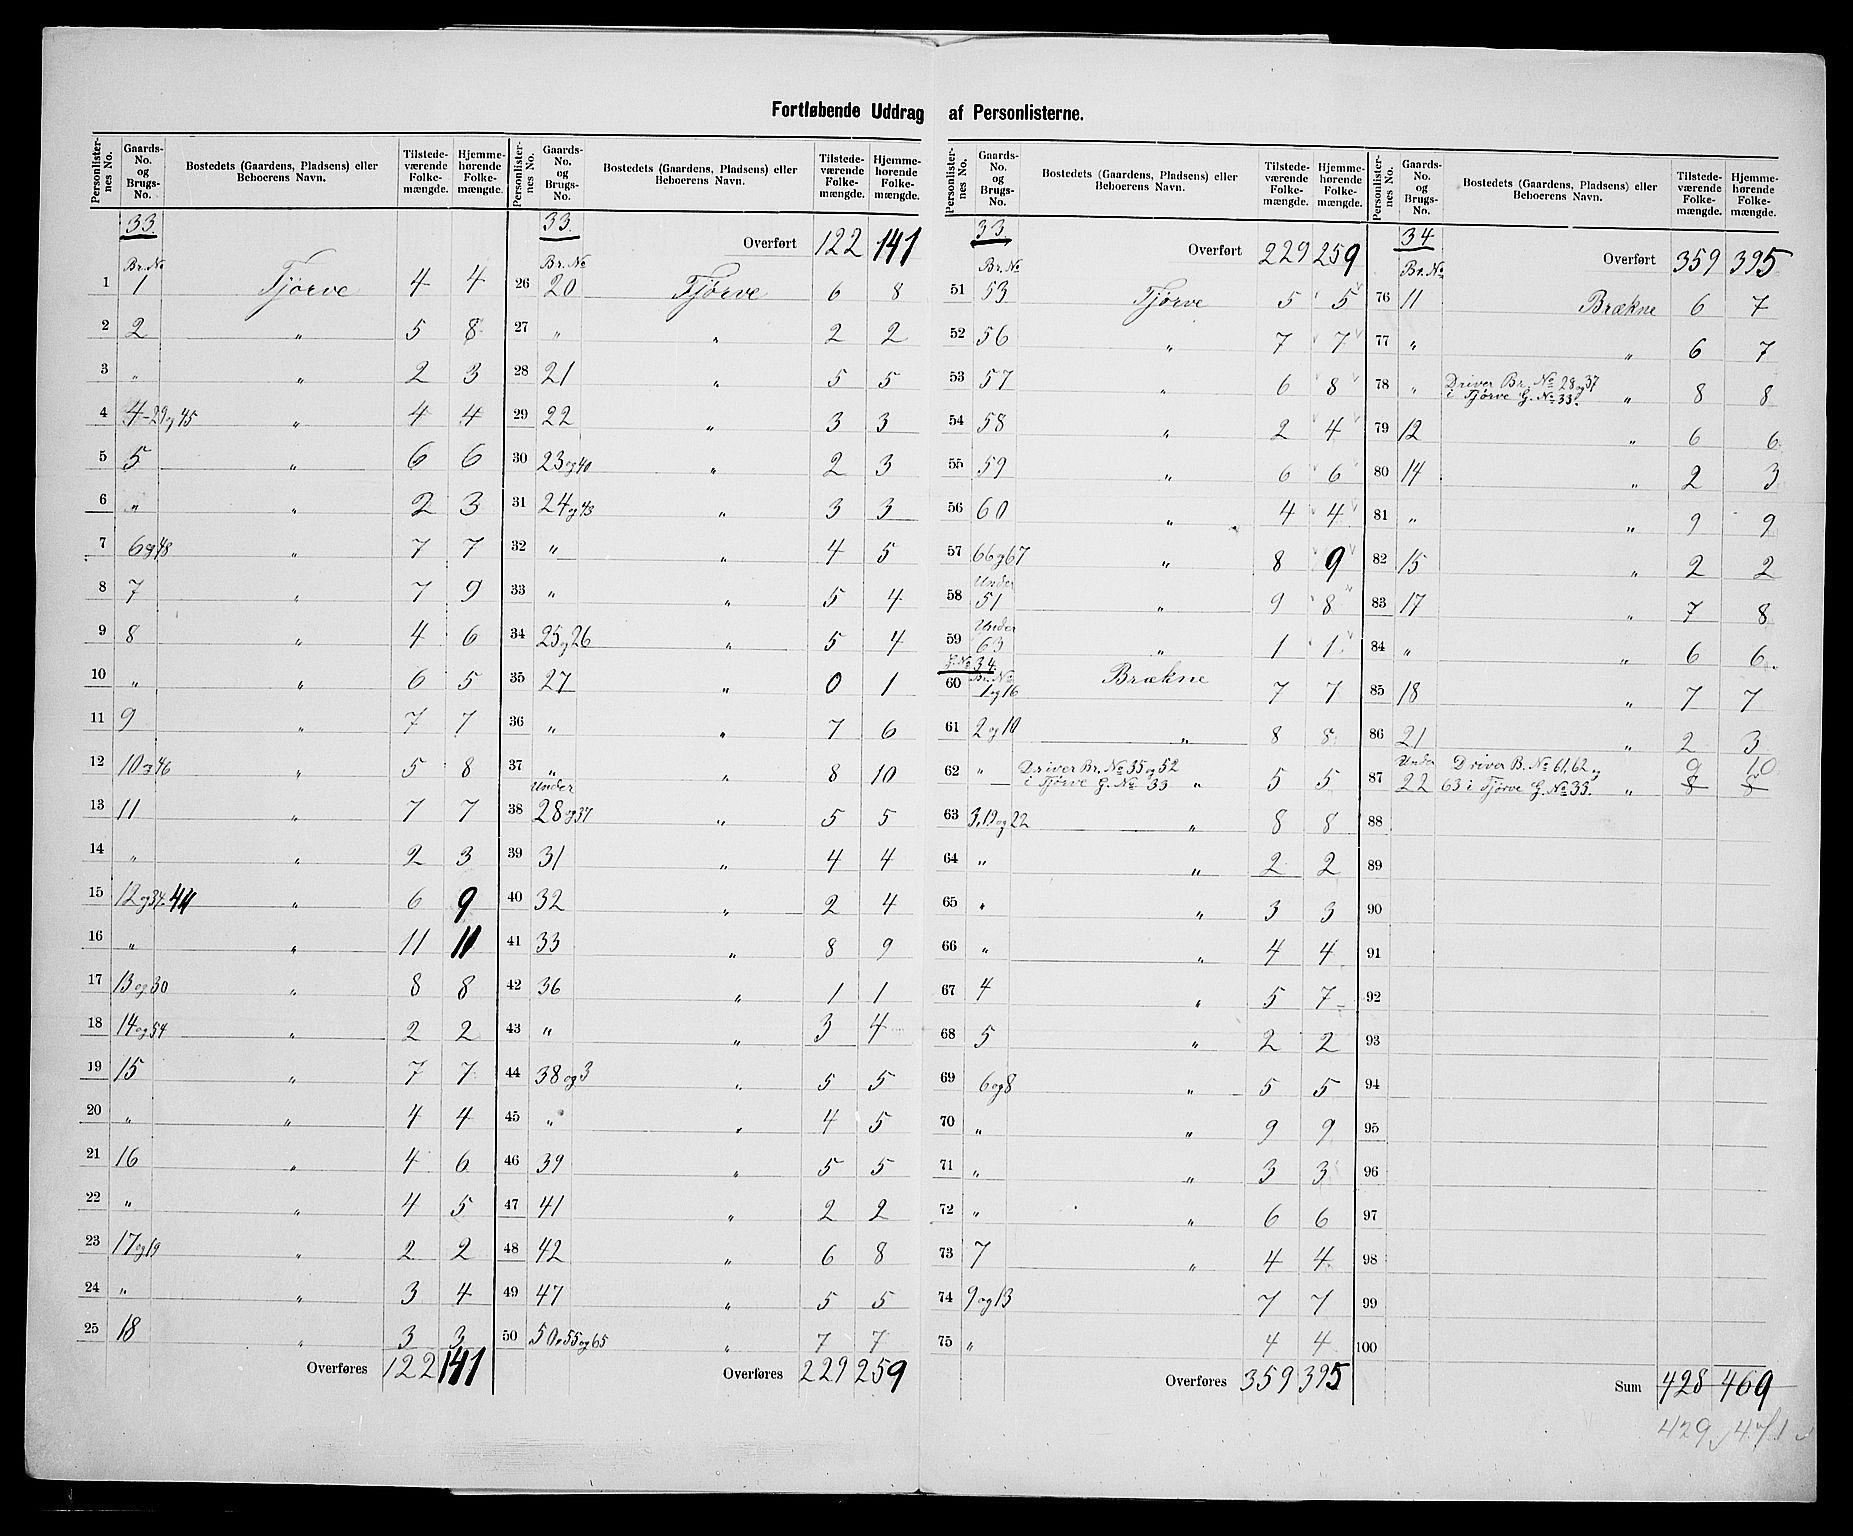 Fortløbende Uddrag af Personlisterne.
Personlister-nes No. Gaards-No. og Brugs-No. Bostedets (Gaardens, Pladsens) eller Beboerens Navn. Tilstede-værende Folke-mængde. Hjemme-hørende Folke-mængde.
33.
Br. No
1 1 Tjørve 4 4
2 2 " 5 8
3 " " 2 3
4 4-29 og 45 " 4 4
5 5 " 6 6
6 " " 2 3
7 6 og 48 " 7 7
8 7 " 7 9
9 8 " 4 6
10 " " 6 5
11 9 " 7 7
12 10 og 46 " 5 8
13 11 " 7 7
14 " " 2 3
15 12 og 34. 44 " 6 9
16 " " 11 11
17 13 og 30 " 8 8
18 14 og 54 " 2 2
19 15 " 7 7
20 " " 4 4
21 16 " 4 6
22 " " 4 5
23 17 og 19 " 2 2
24 " " 3 4
25 18 " 3 3
Overføres 122 141
Personlister-nes No. Gaards-No. og Brugs-No. Bostedets (Gaardens, Pladsens) eller Beboerens Navn. Tilstede-værende Folke-mængde. Hjemme-hørende Folke-mængde.
33.
Overført 122 141
Br. No
26 20 Tjørve 6 8
27 " " 2 2
28 21 " 5 5
29 22 " 3 3
30 23 og 40 " 2 3
31 24 og 43 " 3 3
32 " " 4 5
33 " " 5 4
34 25 og 26 " 5 4
35 27 " 0 1
36 " " 7 6
37 " " 8 10
Under
38 28 og 37 " 5 5
39 31 " 4 4
40 32 " 2 4
41 33 " 8 9
42 36 " 1 1
43 " " 3 4
44 38 og 3 " 5 5
45 " " 4 5
46 39 " 5 5
47 41 " 2 2
48 42 " 6 8
49 47 " 5 5
50 50, 55 og 65 " 7 7
Overføres 229 259
Personlister-nes No. Gaards-No. og Brugs-No. Bostedets (Gaardens, Pladsens) eller Beboerens Navn. Tilstede-værende Folke-mængde. Hjemme-hørende Folke-mængde.
33.
Overført 229 259
Br. No
51 53 Tjørve 5 5
52 56 " 7 7
53 57 " 6 8
54 58 " 2 4
55 59 " 6 6
56 60 " 4 4
57 66 og 67 " 8 9
Under
58 51 " 9 8
Under
59 63 " 1 1
G. No 34.
Br. No
60 1 og 16 Brækne 7 7
61 2 og 10 " 8 8
62 " Driver Br. No 35 og 52
i Tjørve G. No 33 " 5 5
63 3, 19 og 22 " 8 8
64 " " 2 2
65 " " 3 3
66 " " 4 4
67 4 " 5 7
68 5 " 2 2
69 6 og 8 " 5 5
70 " " 9 9
71 " " 3 3
72 " " 6 6
73 7 " 4 4
74 9 og 13 7 7
75 " 4 4
Overføres 359 395
Personlister-nes No. Gaards-No. og Brugs-No. Bostedets (Gaardens, Pladsens) eller Beboerens Navn. Tilstede-værende Folke-mængde. Hjemme-hørende Folke-mængde.
34
Overført 359 395
Br. No
76 11 Brækne 6 7
77 " " 6 7
78 " Driver Br. No 28 og 37
i Tjørve G. No 33. " 8 8
79 12 " 6 6
80 14 " 2 3
81 " " 9 9
82 15 " 2 2
83 17 " 7 8
84 " " 6 6
85 18 " 7 7
86 21 " 2 3
Under Driver B. No 61, 62 og 9 10
87 22 63 i Tjørve G. No 33. " 8 8
88
89
90
91
92
93
94
95
96
97
98
99
100
Sum 428 469
429 471